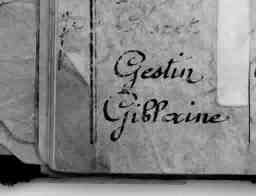 Gestin
Giblaine